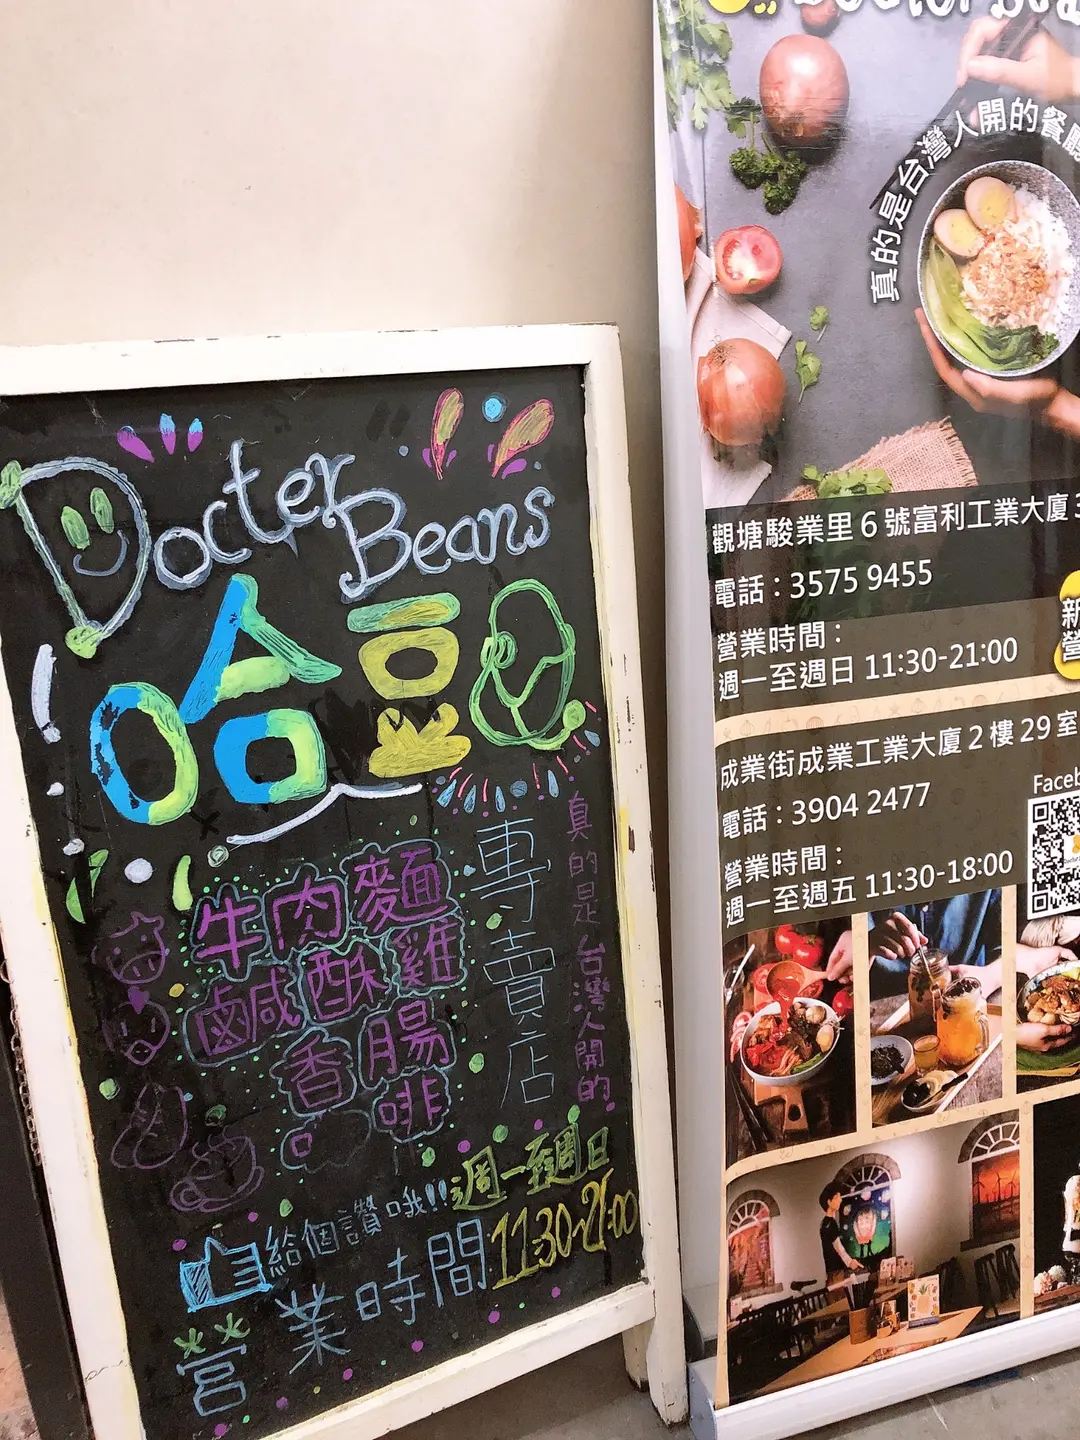 Docter Beans
哈豆
牛肉麵
鹹酥雞
香腸
啡
專賣店
真的是台灣人開的!
給個讚哦!!
週一至週日
營業時間 11:30~21:00
真的是台灣人開的餐廳
觀塘駿業里6號富利工業大廈3
電話：3575 9455
營業時間：
週一至週日 11:30-21:00
新
營
成業街成業工業大廈2樓29室
電話：3904 2477
營業時間：
週一至週五 11:30-18:00